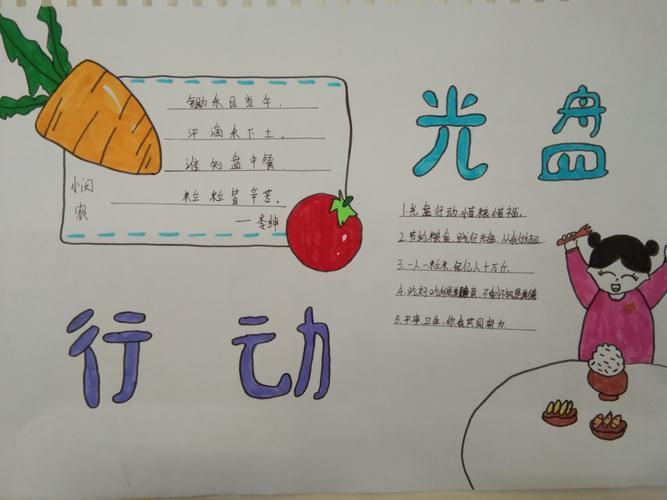 锄禾日当午,
汗滴禾下土。
谁知盘中餐,
粒粒皆辛苦。
—李绅
悯
农
光 盘
1.光盘行动,惜粮惜福.
2.节约粮食,践行光盘,从我做起
3.一人一粒米,亿人十万斤
4.吃好吃饱是美
5.干净卫生,你我共同努力
行 动